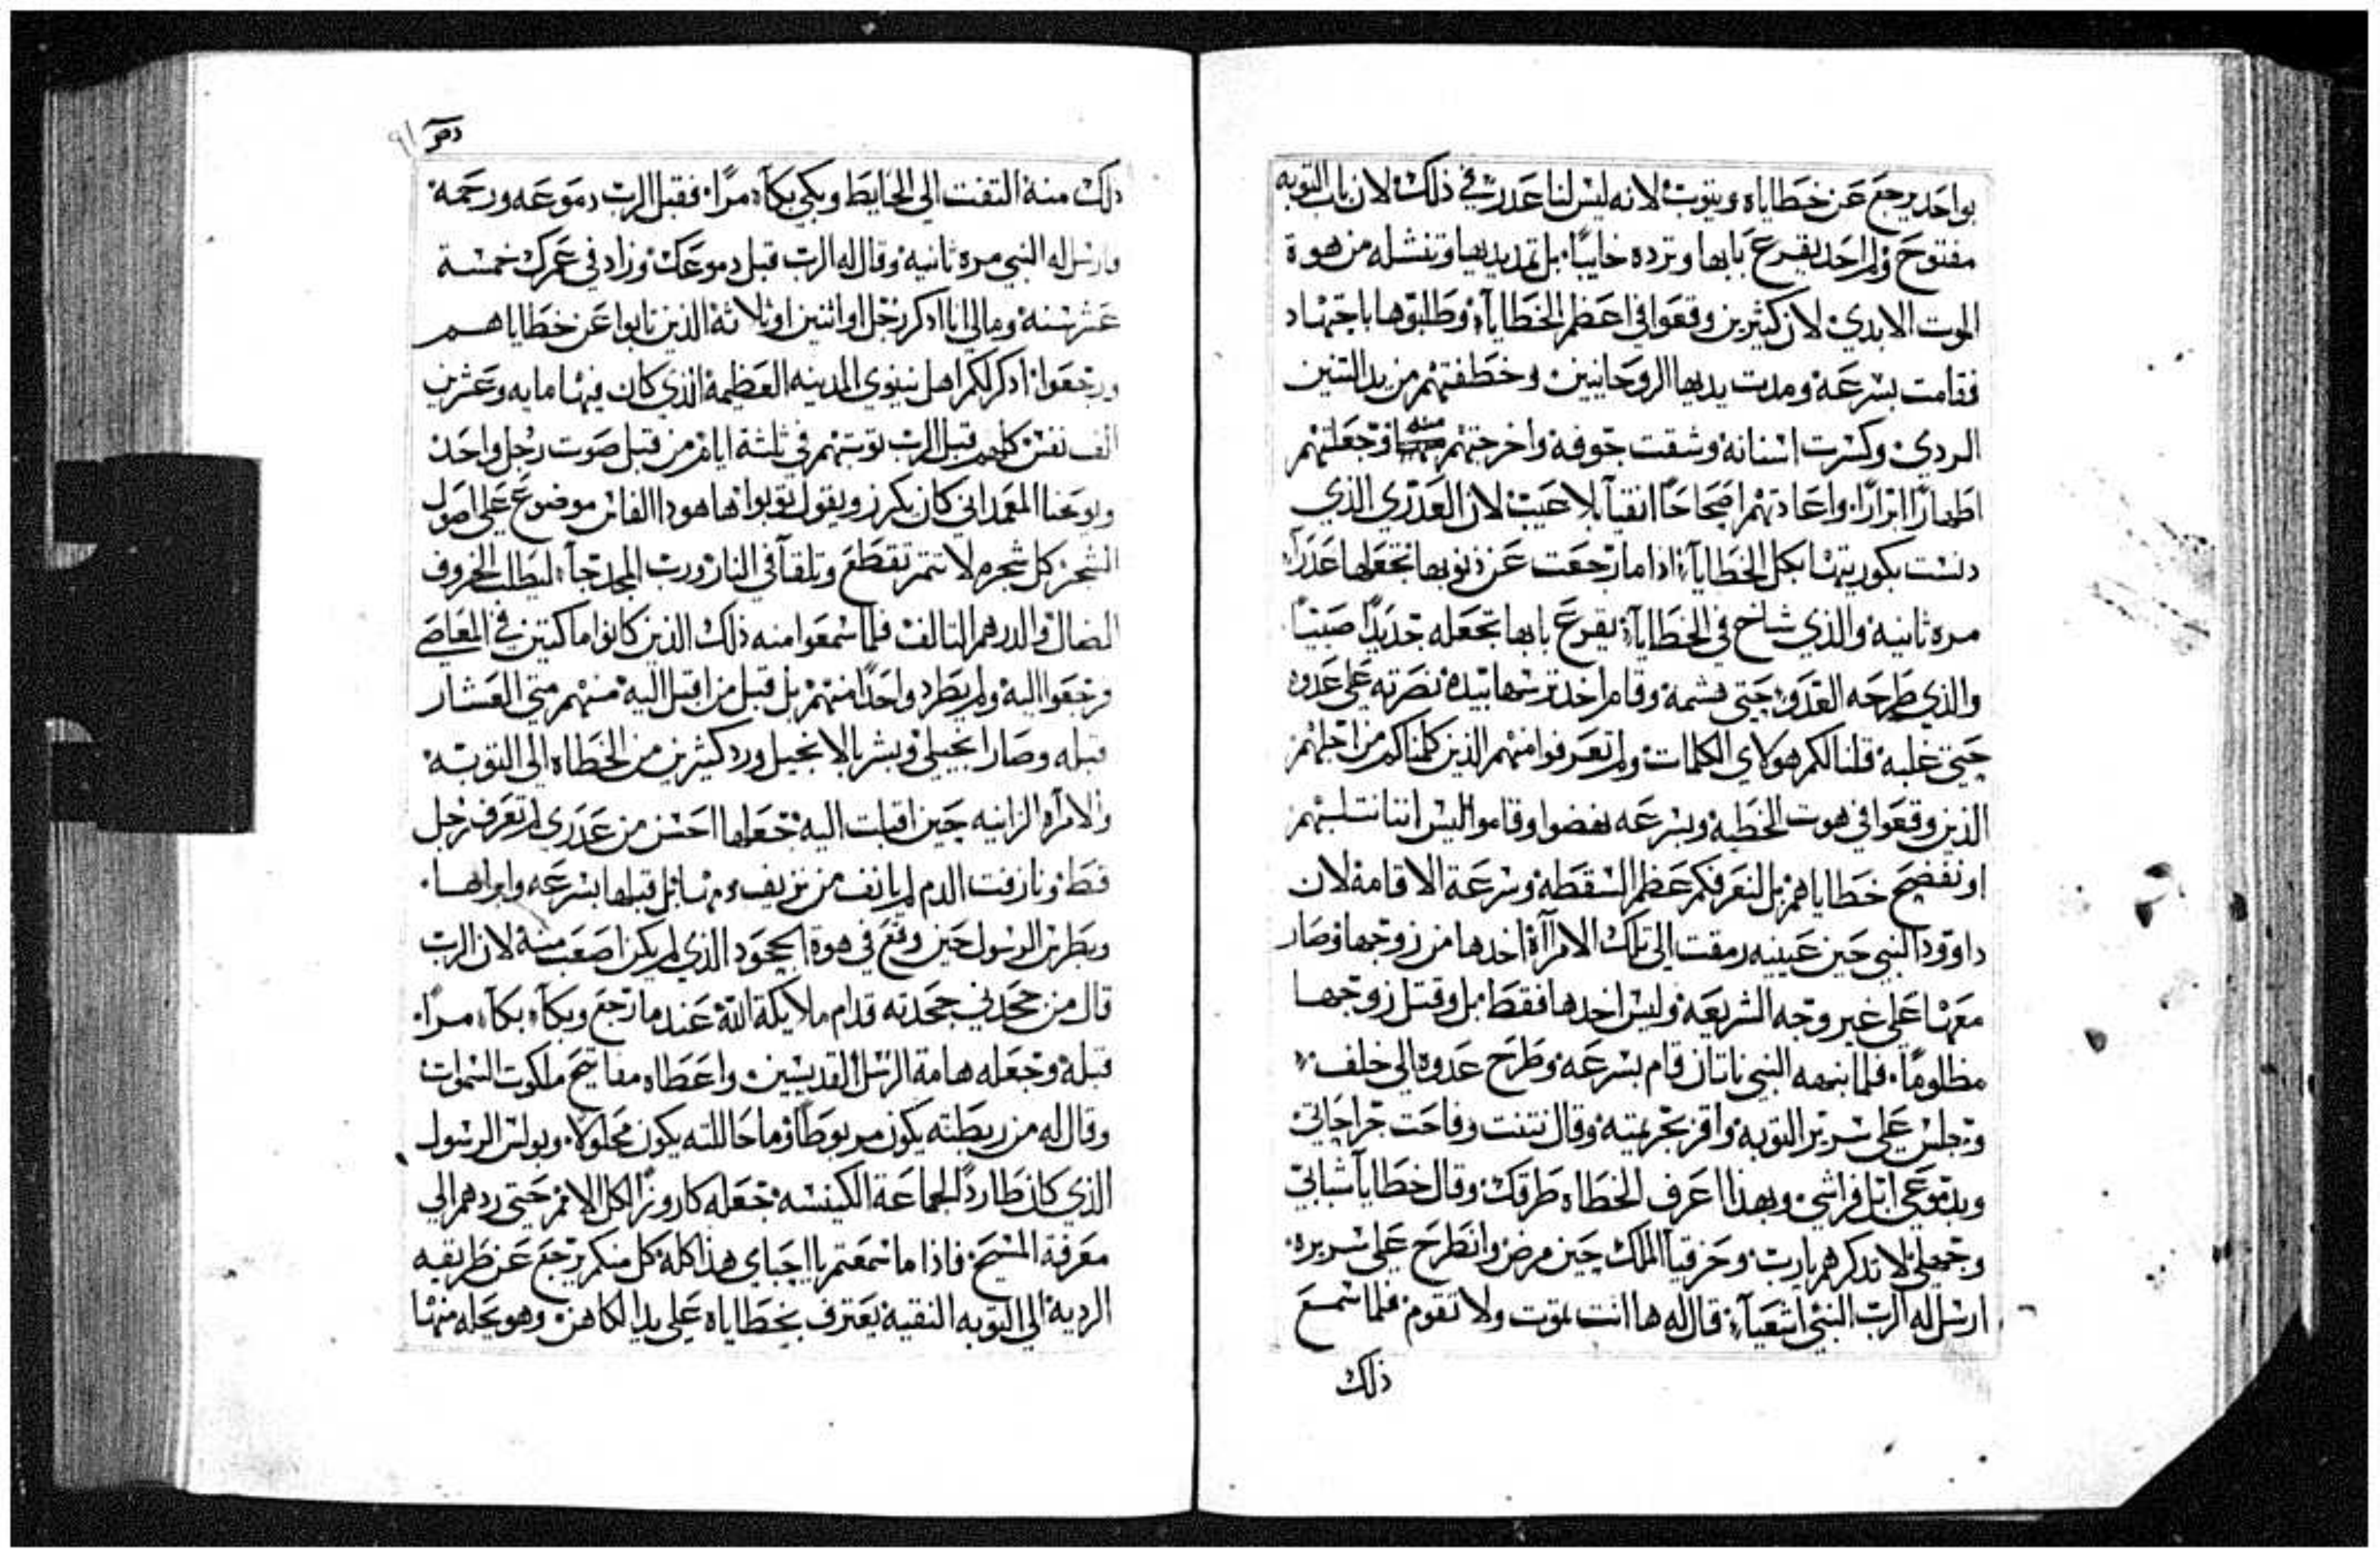 بواحد يرجع عن خطاياه ويتوب لانه ليس لنا عدر في ذلك لان باب التوبه
مفتوح ولم احد يقرع بابها وترده خايبًا بل تمد يديها وتنشله من هوة
الموت الابدي لان كثيرين وقعوا في اعظم الخطايا وطلبوها باجتهاد
فقامت بسرعة ومدت يديها الروحانيين وخطفتهم من يد التنين
الردي وكسرت اسنانه وشقت جوفه واخرجتهم منه وجعلتهم
اطهارًا ابرارًا واعادتهم اصحاحًا انقيآ بلا عيب لان العدري الذي
دنست بكوريتها بكل الخطايآ اذا ما رجعت عن ذنوبها تجعلها عدرآ
مره ثانية والذي شاخ في الخطايآ يقرع بابها تجعله جديدًا صبيًا
والذي طرحه العدو حتي هشمه وقام اخد ترسها بيده نصرته علي عدوه
حتي غلبه قلنا لكم هولاي الكلمات ولم تعرفوا منهم الذين كلمناكم من اجلهم
الذين وقعوا في هوت الخطية وبسرعه نهضوا وقاموا اليس اننا نتلبهم
او نفضح خطاياهم بل لنعرفكم عظم السقطة وسرعة الاقامة لان
داوود النبي حين عينيه رمقت الي تلك الامرآة اخدها من زوجها وصار
معها علي غير وجه الشريعة وليس اخدها فقط بل وقتل زوجها
مظلومًا فلما نبهه النبي ناتان قام بسرعة وطرح عدوه الي خلف
وجلس علي سرير التوبة واقر بجريمته وقال نتنت وفاحت جراحاتي
وبدموعي ابل فراشي وبهذا اعرف الخطاه طرقك وقال خطايا شبابي
وجهلي لا تدكرهم يارب وحزقيآ الملك حين مرض وانطرح علي سريره
ارسل له الرب النبي اشعيآ قال له ها انت تموت ولا تقوم فلما سمع
ذلك
ذلك منه التفت الي الحايط وبكي بكآء مرًا فقبل الرب دموعه ورحمه
وارسل له النبي مره ثانية وقال له الرب قبل دموعك وزاد في عمرك خمسة
عشر سنة ومالي انا ادكر رجل او اتنين او ثلاثة الذين تابوا عن خطاياهم
ورجعوا ادكر لكم اهل نينوي المدينه العظيمة الذي كان فيها مايه وعشرين
الف نفس كلهم قبل الرب توبتهم في ثلثة ايام من قبل صوت رجل واحد
ويوحنا المعمداني كان يكرز ويقول توبوا ها هودا الفاس موضوع علي اصول
الشجر كل شجره لا تتمر تقطع وتلقآ في النار ورب المجد جآ ليطلب الخروف
الضال والدرهم التالف فلما سمعوا منه ذلك الذين كانوا ماكتين في المعاصي
ورجعوا اليه ولم يطرد واحدًا منهم بل قبل من اقبل اليه منهم متي العشار
قبله وصار انجيلي وبشر بالانجيل ورد كثيرين من الخطاه الي التوبة
والامرآه الزانيه حين اقبلت اليه جعلها احسن من عدري لم تعرف رجل
قط ونازفت الدم لم يانف من نزيف دمها بل قبلها بسرعه وابراها
وبطرس الرسول حين وقع في هوة الجحود الذي لم يكن اصعب منه لان الرب
قال من جحدني جحدته قدام ملايكة الله عندما رجع وبكآء بكآء مرًا
قبله وجعله هامة الرسل القديسين واعطاه مفاتيح ملكوت السموات
وقال له من ربطته يكون مربوطًا وما حاللته يكون محلولًا وبولس الرسول
الذي كان طاردًا لجماعة الكنيسه جعله كاروزًا لكل الامم حتي ردهم الي
معرفة المسيح فاذا ما سمعتم يا احباي هذا كله كل منكم يرجع عن طريقه
الردية الي التوبه النقيه يعترف بخطاياه علي يد الكاهن وهو يحله منها